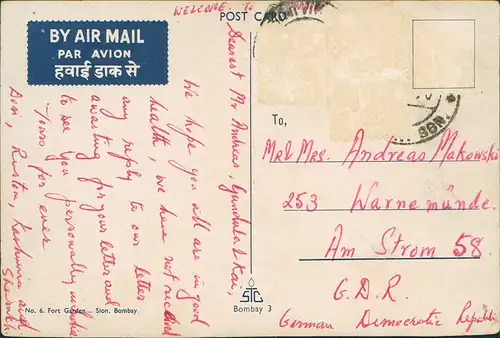 WELCOME. To
POST CARD
BY AIR MAIL
PAR AVION
हवाई डाक से
Dearest Mr Andreas, Gundula & Kai,
We hope you all are in good
health, we have not received
any reply to our letter
awaiting for your letter and
to see you personally
Yours for ever
No. 6. Fort Garden – Sion, Bombay
STC
Bombay 3
To,
Mr & Mrs. Andreas Makowski
253 Warnemünde.
Am Strom 58.
G.D.R.
German Democratic Republic